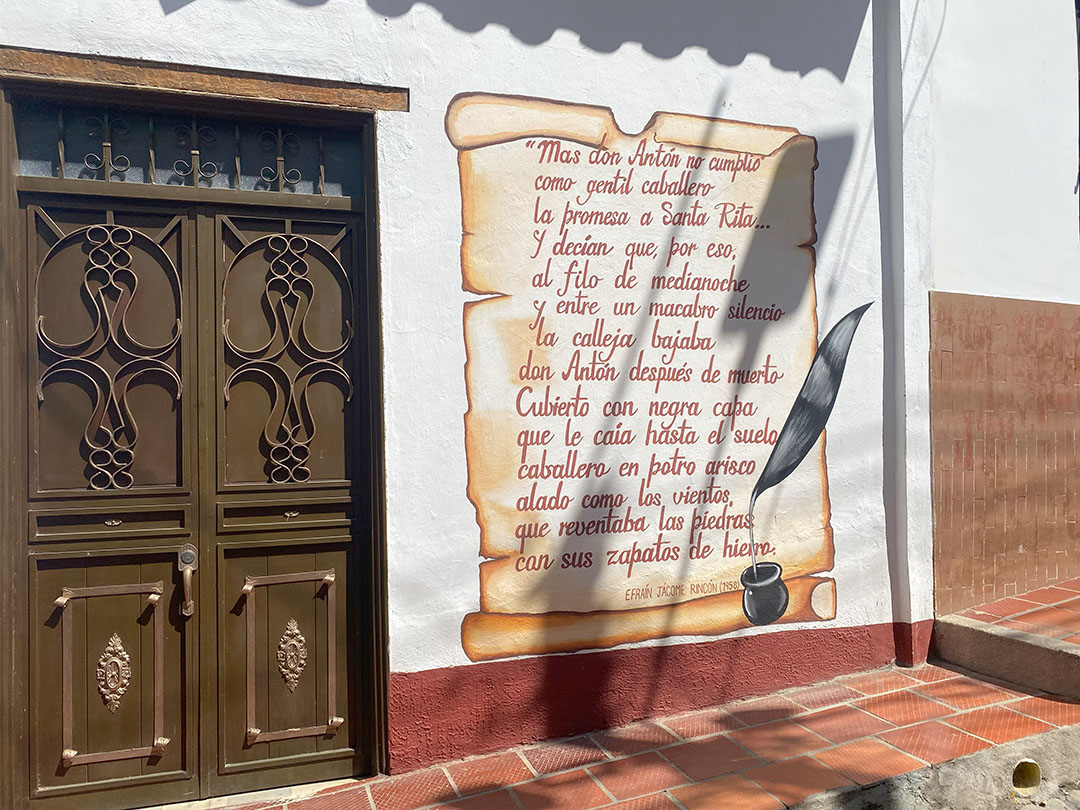 "Mas don Antón no cumplió
como gentil caballero
la promesa a Santa Rita...
Y decían que, por eso,
al filo de medianoche
y entre un macabro silencio
la calleja bajaba
don Antón después de muerto
Cubierto con negra capa
que le caía hasta el suelo
caballero en potro arisco
alado como los vientos,
que reventaba las piedras
con sus zapatos de hierro.
EFRAÍN JÁCOME RINCÓN (1958)